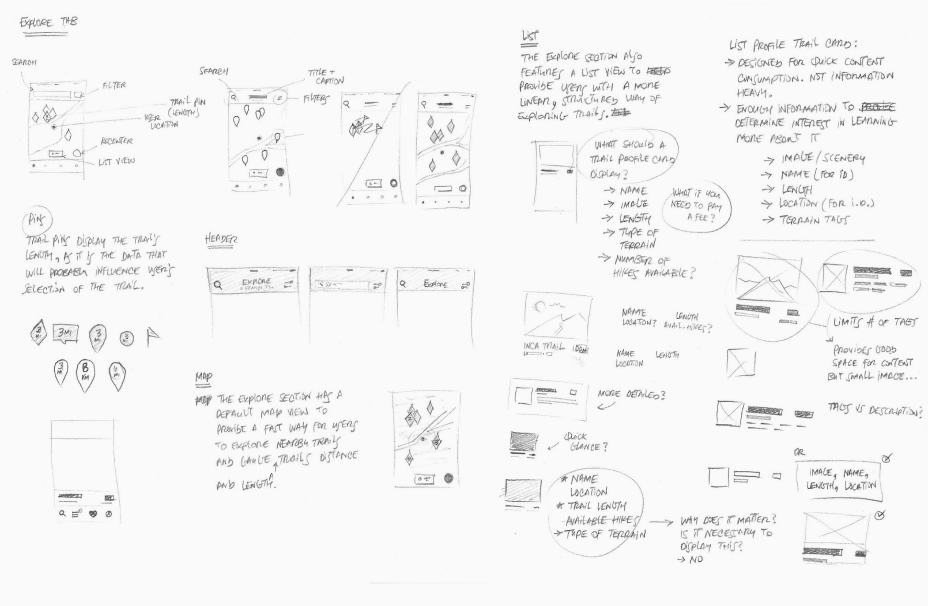 EXPLORE TAB
SEARCH
FILTER
TRAIL PIN
(LENGTH)
USER
LOCATION
RECENTER
LIST VIEW
SEARCH
TITLE +
CAPTION
FILTERS
PINS
TRAIL PINS DISPLAY THE TRAIL'S
LENGTH, AS IT IS THE DATA THAT
WILL PROBABLY INFLUENCE USER'S
SELECTION OF THE TRAIL.
3 MI
3MI
3 MI
3
3 MI
8 KM
HEADER
EXPLORE
EXPLORE
MAP
MAP THE EXPLORE SECTION HAS A
DEFAULT MAP VIEW TO
PROVIDE A FAST WAY FOR USERS
TO EXPLORE NEARBY TRAILS
AND GAUGE TRAILS DISTANCE
AND LENGTH.
LIST
THE EXPLORE SECTION ALSO
FEATURES A LIST VIEW TO
PROVIDE USERS WITH A MORE
LINEAR, STRUCTURED WAY OF
EXPLORING TRAILS.
WHAT SHOULD A
TRAIL PROFILE CARD
DISPLAY?
→ NAME
→ IMAGE
→ LENGTH
→ TYPE OF
TERRAIN
→ NUMBER OF
HIKES AVAILABLE?
WHAT IF YOU
NEED TO PAY
A FEE?
INCA TRAIL
NAME LENGTH
LOCATION? AVAIL. HIKES?
NAME LENGTH
LOCATION
MORE DETAILED?
QUICK
GLANCE?
* NAME
LOCATION
* TRAIL LENGTH
AVAILABLE HIKES
→ TYPE OF TERRAIN
WHY DOES IT MATTER?
IS IT NECESSARY TO
DISPLAY THIS?
→ NO
LIST PROFILE TRAIL CARD:
→ DESIGNED FOR QUICK CONTENT
CONSUMPTION. NOT INFORMATION
HEAVY.
→ ENOUGH INFORMATION TO
DETERMINE INTEREST IN LEARNING
MORE ABOUT IT
→ IMAGE/SCENERY
→ NAME (FOR ID)
→ LENGTH
→ LOCATION (FOR I.D.)
→ TERRAIN TAGS
LIMITS # OF TAGS
PROVIDES GOOD
SPACE FOR CONTENT
BUT SMALL IMAGE...
TAGS VS DESCRIPTION?
OR
IMAGE, NAME,
LENGTH, LOCATION